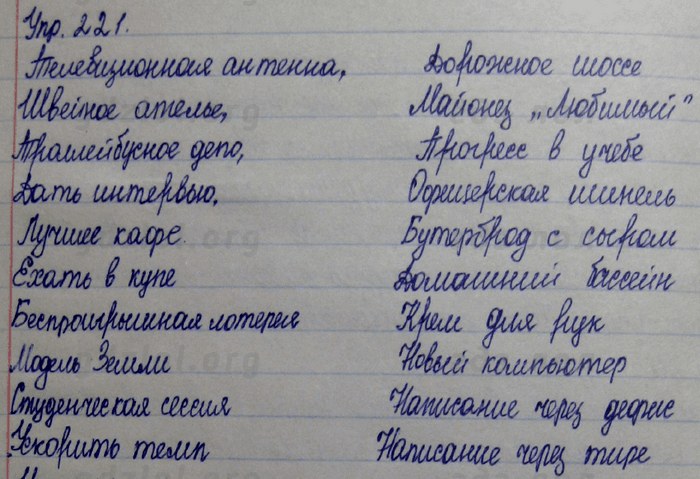 Упр. 221.
Телевизионная антенна,
Швейное ателье,
Траллейбусное депо,
Дать интервью,
Лучшее кафе.
Ехать в купе
Беспроигрышная лотерея
Модель Земли
Студенческая сессия
Ускорить темп
Дорожное шоссе
Майонез „Любимый"
Прогресс в учебе
Офицерская шинель
Бутерброд с сыром
Домашний бассейн
Крем для рук
Новый компьютер
Написание через дефис
Написание через тире